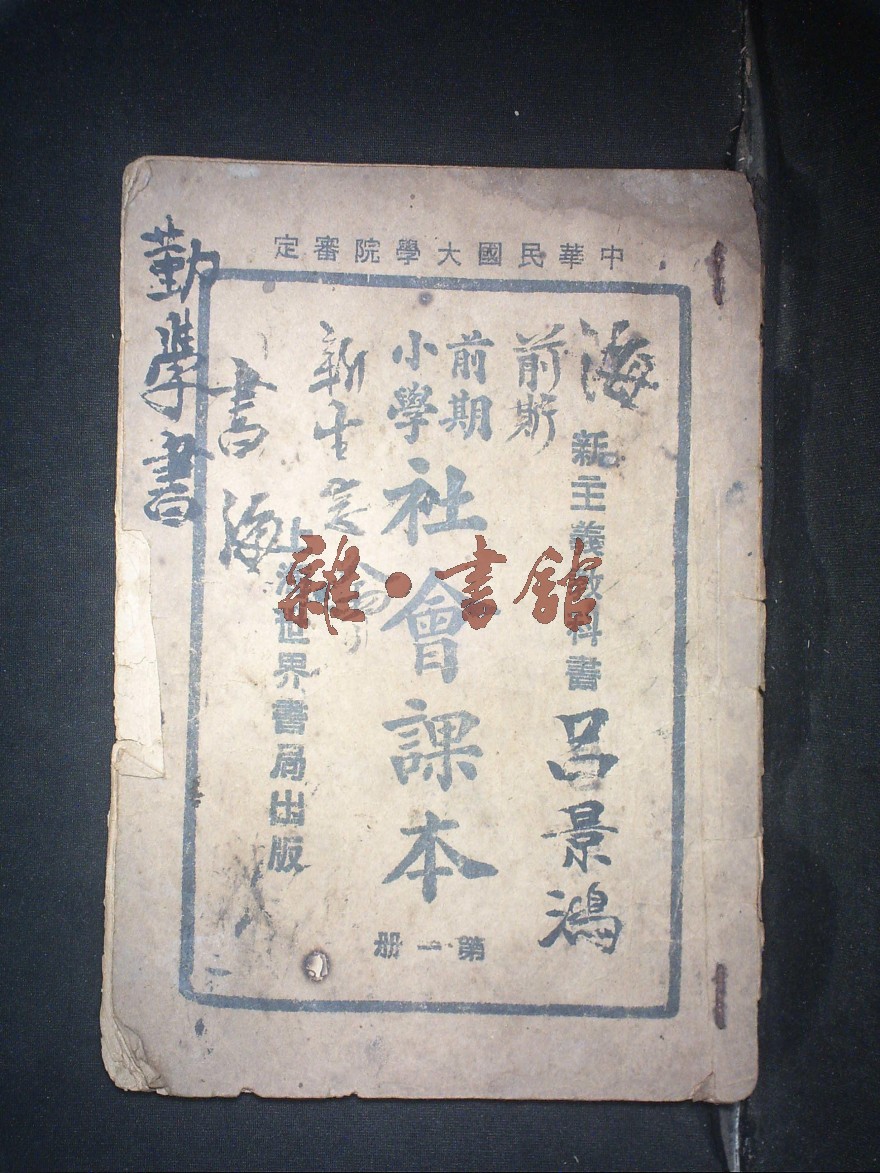 中華民國大學院審定
海
新主義教科書
呂景鴻
前期
前期
小學
社會課本
第一册
新主意
上海世界書局出版
書海
勤學書
雜·書館